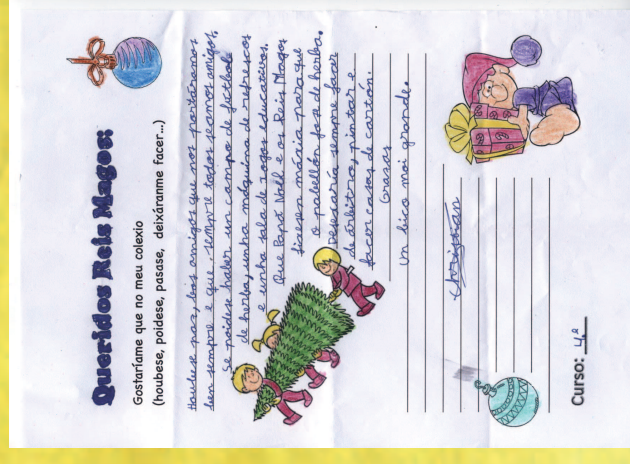 Queridos Reis Magos:
Gostaríame que no meu colexio
(houbese, poidese, pasase, deixáranme facer...)
Houbese paz, bos amigos que nos portáramos
ben sempre e que sempre todos seamos amigos.
Se poidese haber un campo de futbol
de herba, unha máquina de refrescos
e unha sala de xogos educativos.
Que Papá Noél e os Reis Magos
fixesen máxia para que
o pabellón fose de herba.
Deixaránme facer
de árbitro, pintar e
facer casas de cartón.
Grazas
Un bico moi grande.
Christian
Curso: 4º